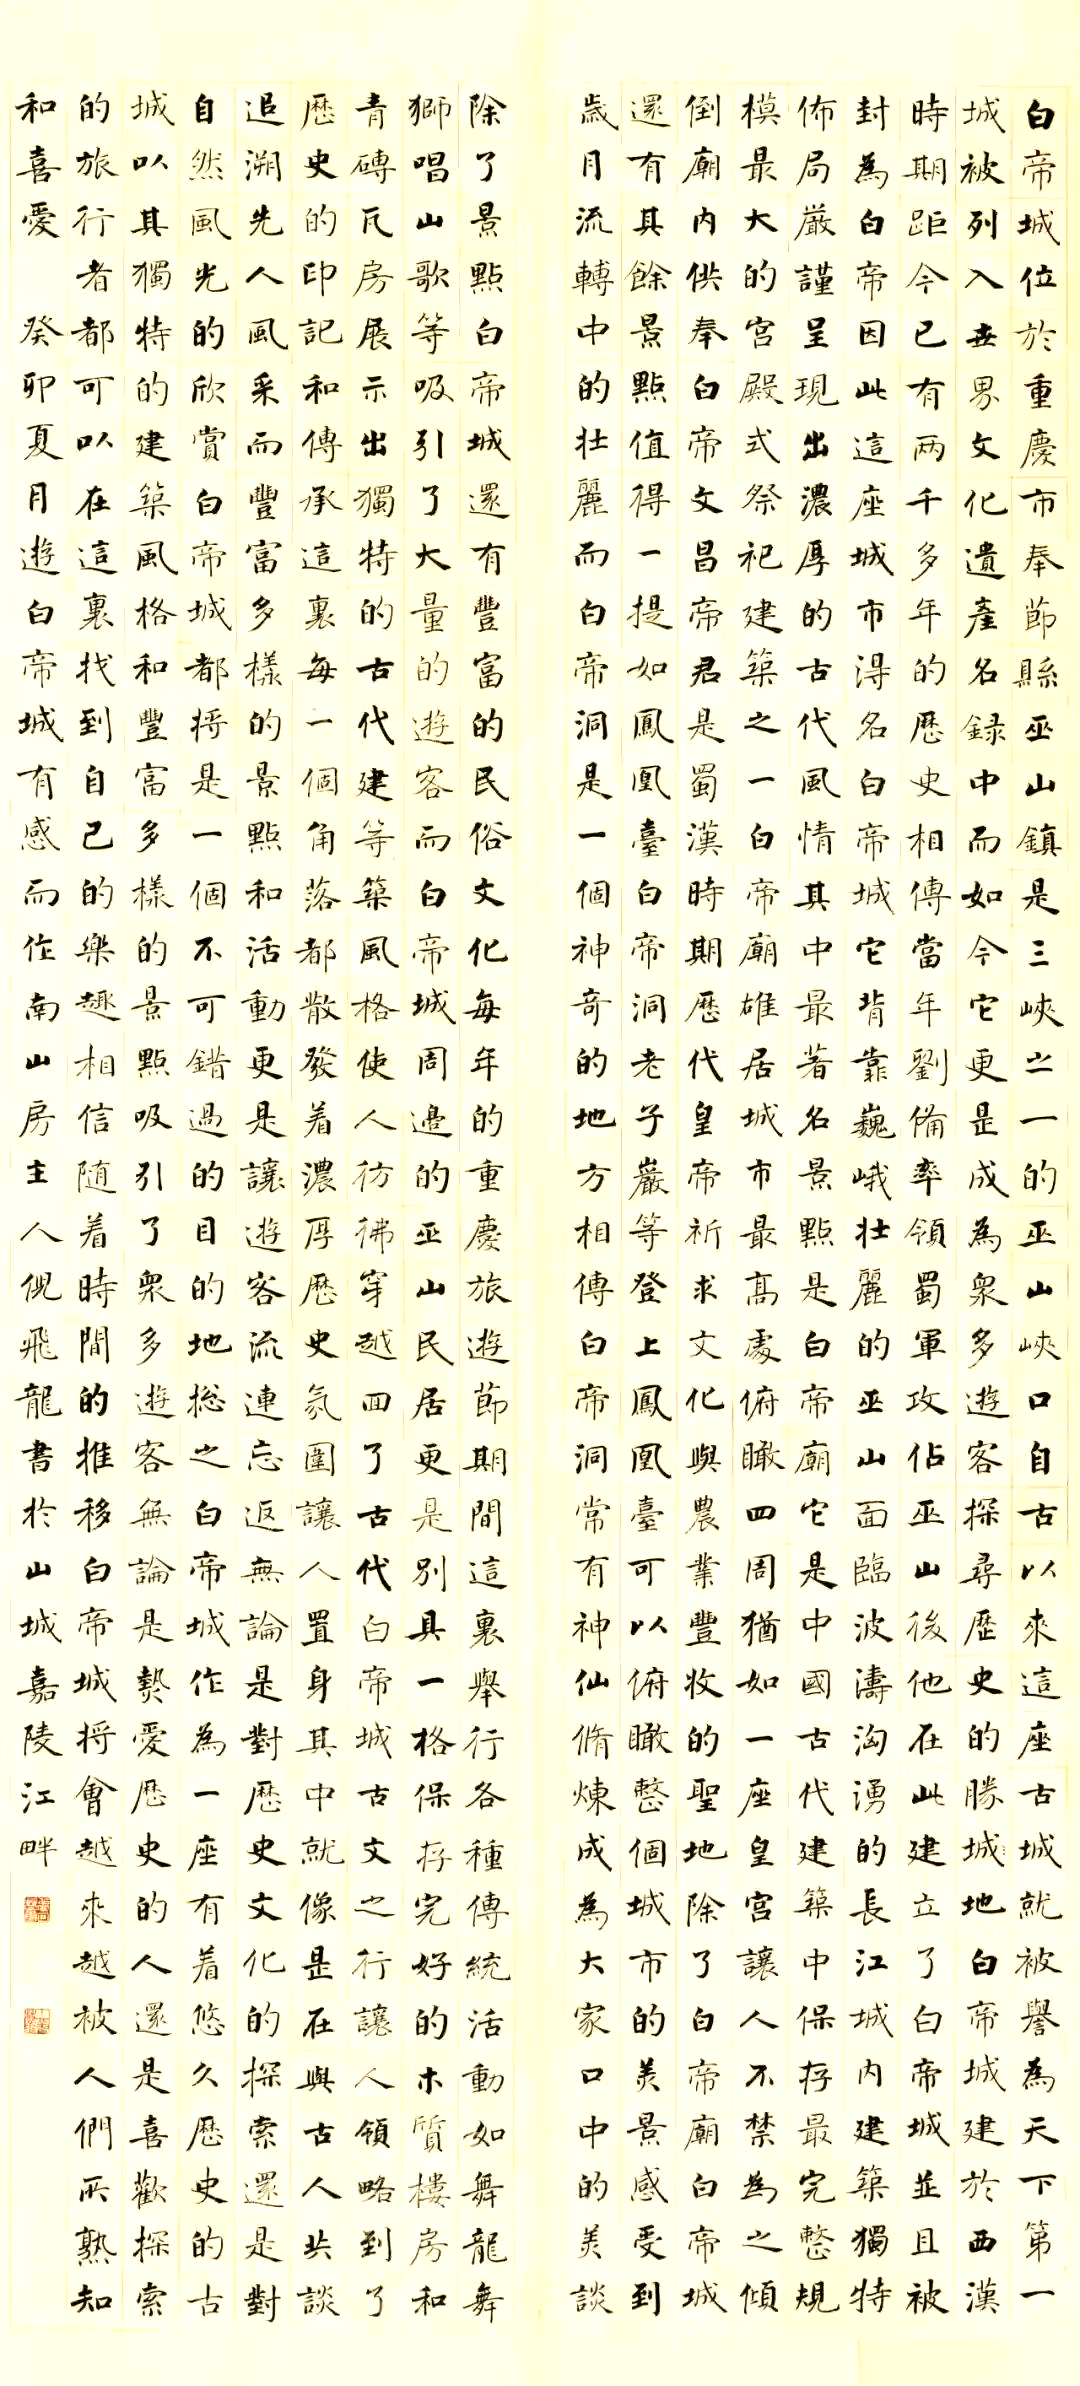 白帝城位於重慶市奉節縣巫山鎮是三峽之一的巫山峽口自古以來這座古城就被譽為天下第一
城被列入世界文化遺產名録中而如今它更是成為衆多遊客探尋歷史的勝城地白帝城建於西漢
時期距今已有两千多年的歷史相傳當年劉備率領蜀軍攻佔巫山後他在此建立了白帝城並且被
封為白帝因此這座城市得名白帝城它背靠巍峨壯麗的巫山面臨波濤洶湧的長江城内建築獨特
佈局嚴謹呈現出濃厚的古代風情其中最著名景點是白帝廟它是中國古代建築中保存最完整規
模最大的宮殿式祭祀建築之一白帝廟雄居城市最高處俯瞰四周猶如一座皇宮讓人不禁為之傾
倒廟内供奉白帝文昌帝君是蜀漢時期歷代皇帝祈求文化與農業豐收的聖地除了白帝廟白帝城
還有其餘景點值得一提如鳳凰臺白帝洞老子巖等登上鳳凰臺可以俯瞰整個城市的美景感受到
歲月流轉中的壯麗而白帝洞是一個神奇的地方相傳白帝洞常有神仙脩煉成為大家口中的美談
除了景點白帝城還有豐富的民俗文化每年的重慶旅遊節期間這裏舉行各種傳統活動如舞龍舞
獅唱山歌等吸引了大量的遊客而白帝城周邊的巫山民居更是別具一格保存完好的木質樓房和
青磚瓦房展示出獨特的古代建等築風格使人彷彿穿越回了古代白帝城古文之行讓人領略到了
歷史的印記和傳承這裏每一個角落都散發着濃厚歷史氛圍讓人置身其中就像是在與古人共談
追溯先人風采而豐富多樣的景點和活動更是讓遊客流連忘返無論是對歷史文化的探索還是對
自然風光的欣賞白帝城都將是一個不可錯過的目的地総之白帝城作為一座有着悠久歷史的古
城以其獨特的建築風格和豐富多樣的景點吸引了衆多遊客無論是熱愛歷史的人還是喜歡探索
的旅行者都可以在這裏找到自己的樂趣相信随着時間的推移白帝城将會越來越被人們所熟知
和喜愛 癸卯夏月遊白帝城有感而作南山房主人倪飛龍書於山城嘉陵江畔